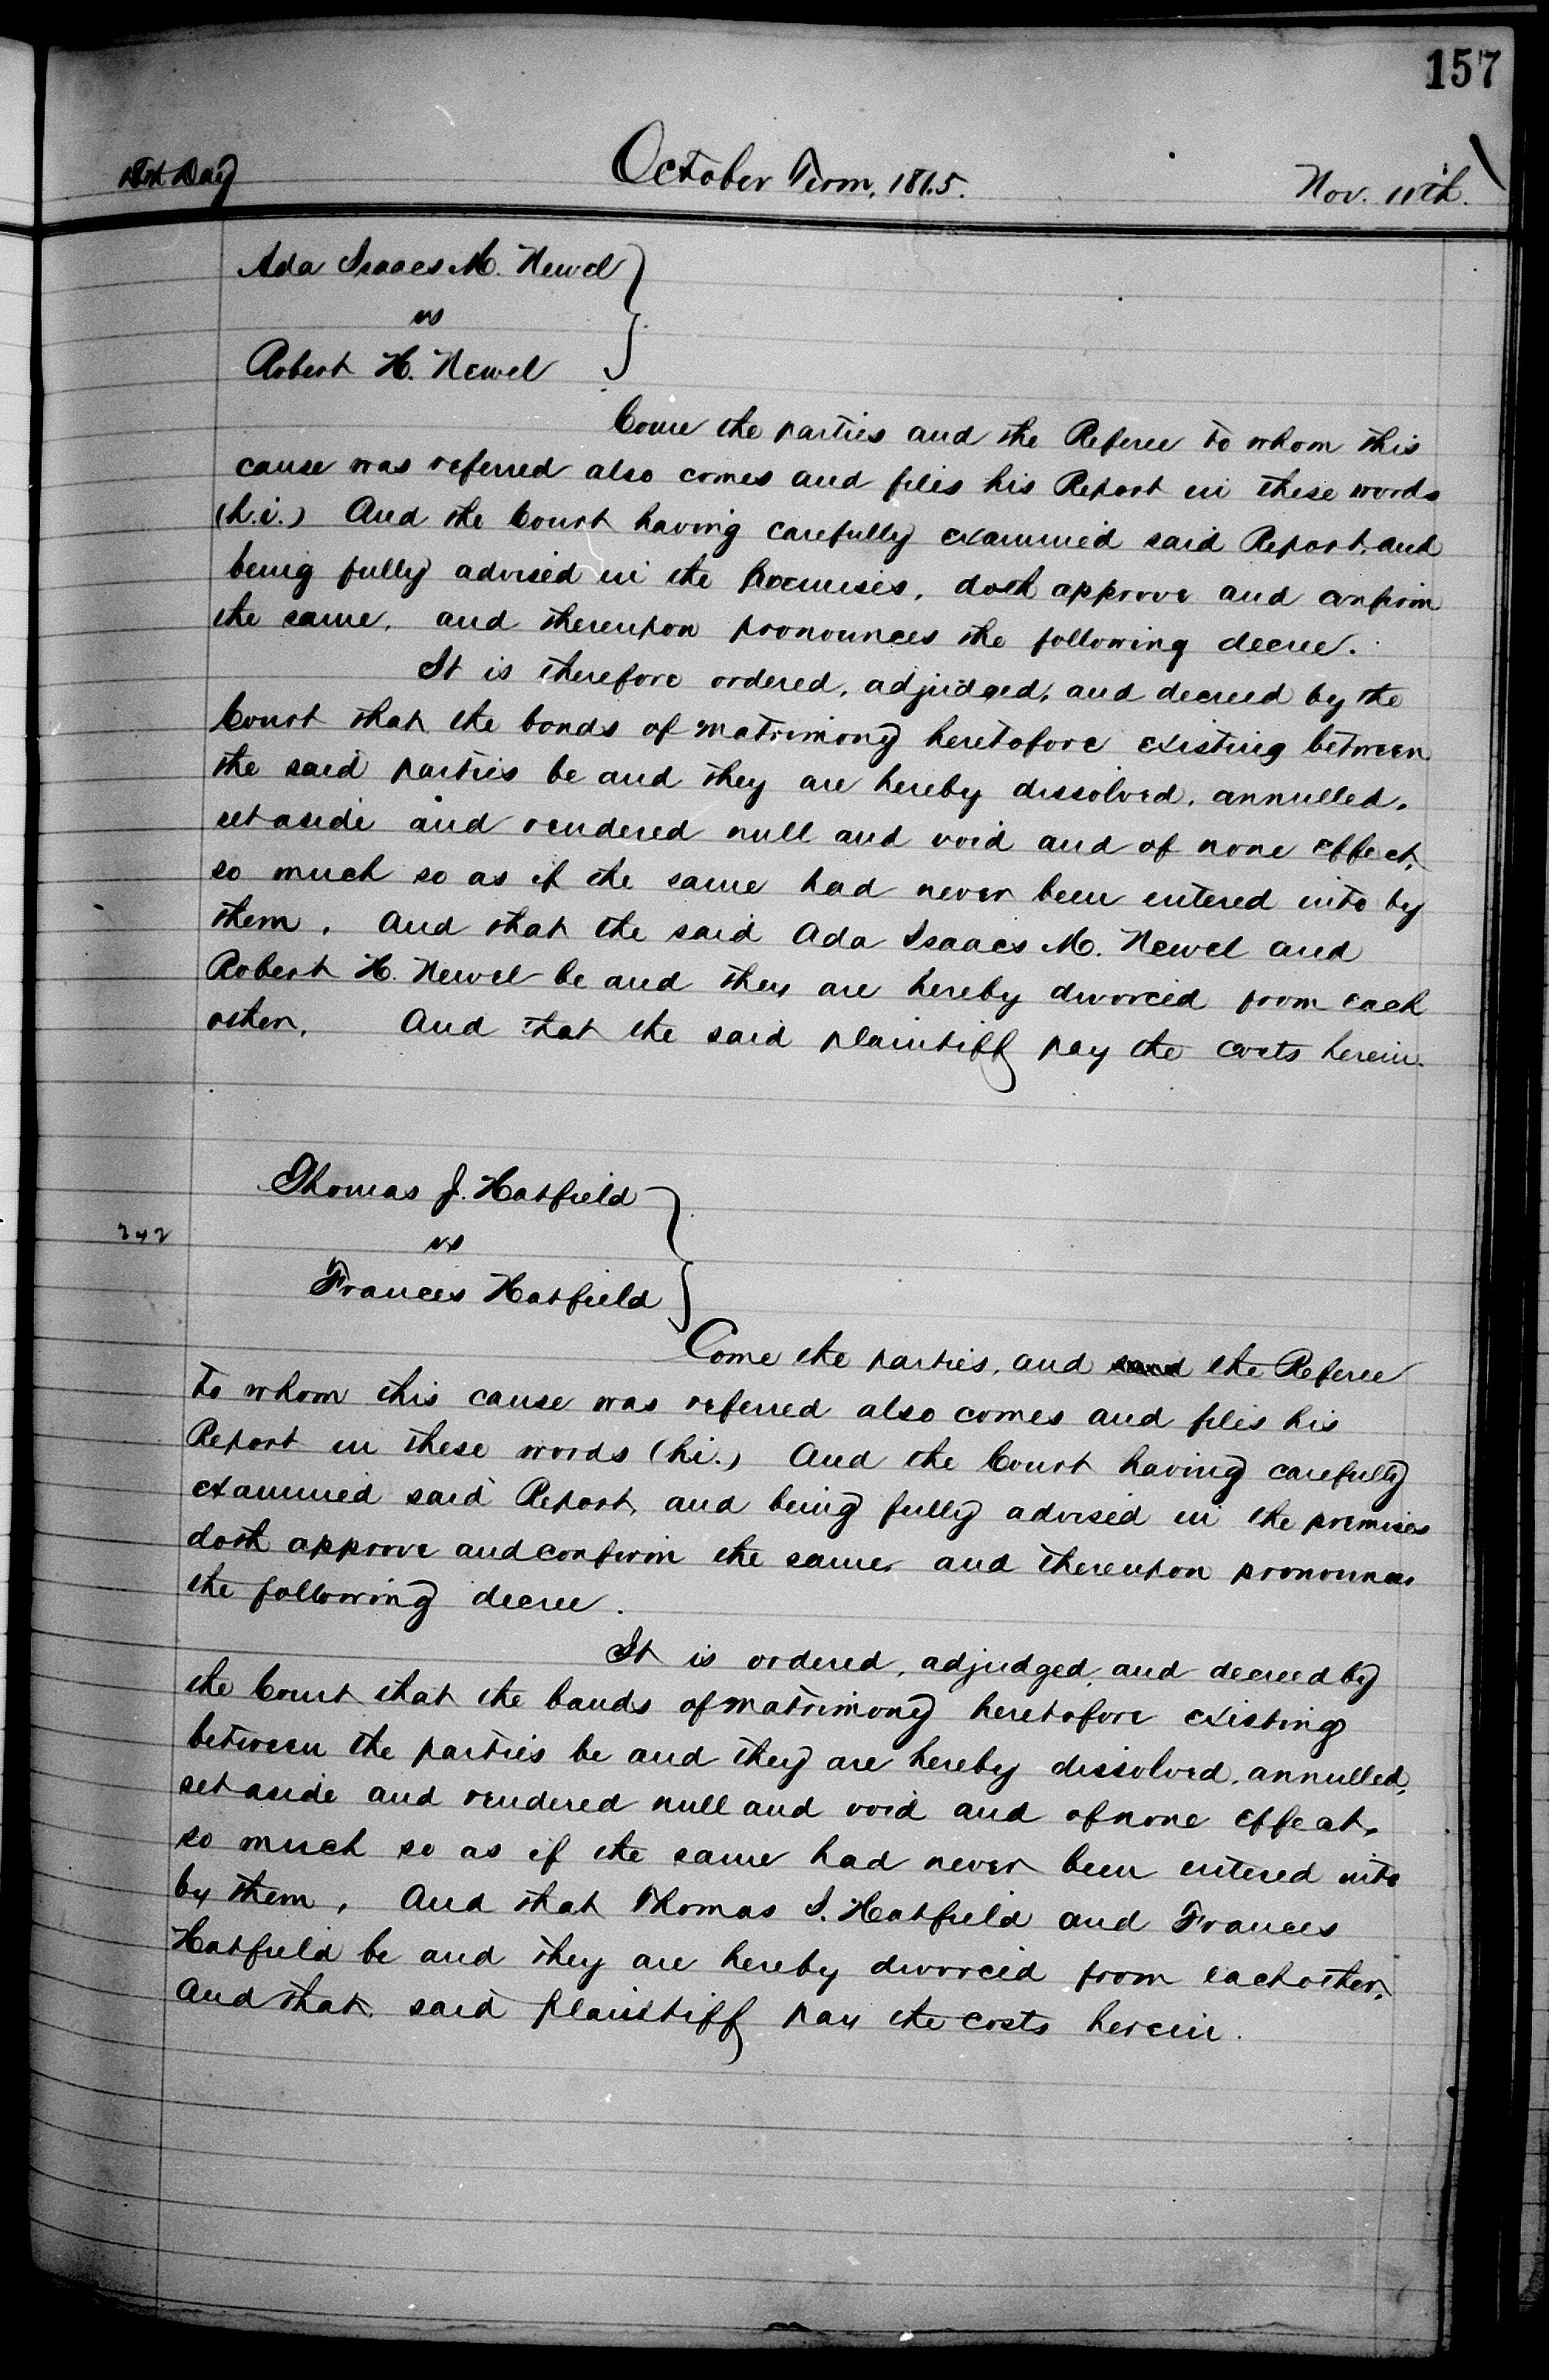 157
Day October Term, 1865. Nov. 11th.
Ada Isaacs M. Newel
vs
Robert H. Newel
Come the parties and the Referee to whom this
cause was referred also comes and files his Report in these words
(h.i.) And the Court having carefully examined said Report, and
being fully advised in the Premises, doth approve and confirm
the same, and thereupon pronounces the following decree.
It is therefore ordered, adjudged, and decreed by the
Court that the bonds of matrimony heretofore existing between
the said parties be and they are hereby dissolved, annulled,
set aside and rendered null and void and of none effect,
so much so as if the same had never been entered into by
them. And that the said Ada Isaacs M. Newel and
Robert H. Newel be and they are hereby divorced from each
other. And that the said plaintiff pay the costs herein.
Thomas J. Hatfield
242
vs
Frances Hatfield
Come the parties, and the Referee
to whom this cause was referred also comes and files his
Report in these words (h.i.) And the Court having carefully
examined said Report, and being fully advised in the premises
doth approve and confirm the same, and thereupon pronounces
the following decree.
It is ordered, adjudged, and decreed by
the Court that the bands of matrimony heretofore existing
between the parties be and they are hereby dissolved, annulled,
set aside and rendered null and void and of none effect,
so much so as if the same had never been entered into
by them. And that Thomas J. Hatfield and Frances
Hatfield be and they are hereby divorced from each other.
And that said plaintiff pay the costs herein.